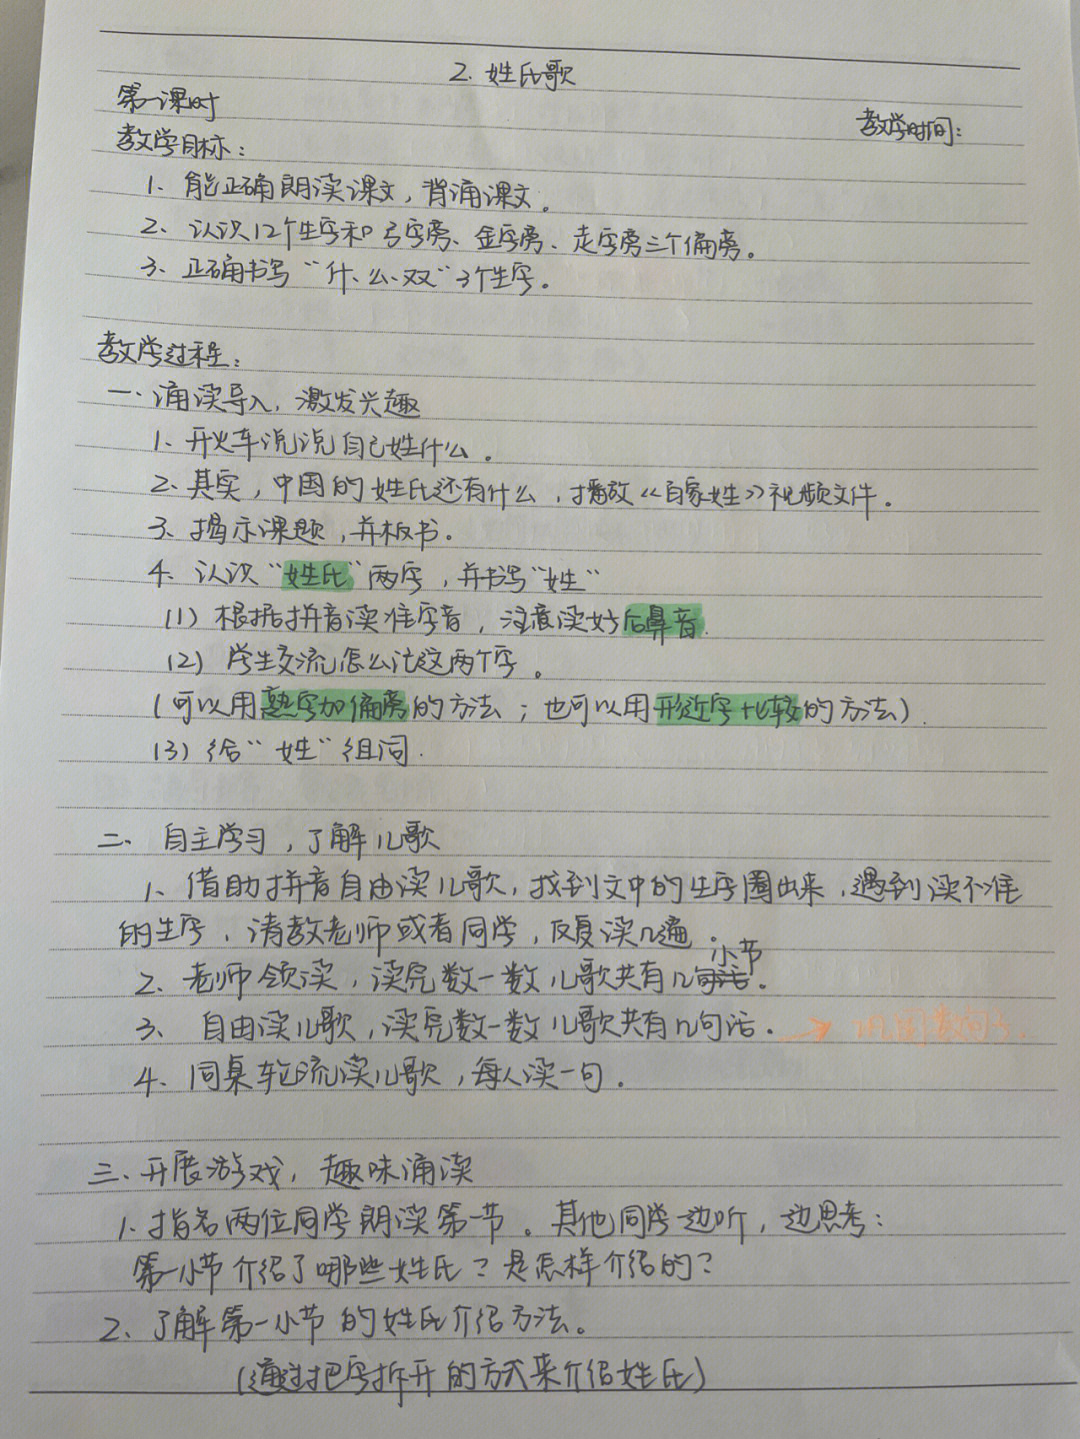 2. 姓氏歌
第一课时
教学时间:
教学目标:
1、能正确朗读课文,背诵课文。
2、认识12个生字和弓字旁、金字旁、走字旁三个偏旁。
3、正确书写“什、么、双”3个生字。
教学过程:
一、诵读导入,激发兴趣
1、开火车说说自己姓什么。
2、其实,中国的姓氏还有什么,播放《百家姓》视频文件。
3、揭示课题,并板书。
4、认识“姓氏”两字,并书写“姓”
(1)根据拼音读准字音,注意读好后鼻音.
(2)学生交流怎么记这两个字。
(可以用熟字加偏旁的方法;也可以用形近字比较的方法).
(3)给“姓”组词.
二、自主学习,了解儿歌
1、借助拼音自由读儿歌,找到文中的生字圈出来,遇到读不准
的生字,请教老师或者同学,反复读几遍。
2、老师领读,读完数一数儿歌共有几小节。
3、自由读儿歌,读完数一数儿歌共有几句话。→
4、同桌轮流读儿歌,每人读一句.
三、开展游戏,趣味诵读
1、指名两位同学朗读第一节。其他同学边听,边思考:
第一小节介绍了哪些姓氏?是怎样介绍的?
2、了解第一小节的姓氏介绍方法。
(通过把字拆开的方式来介绍姓氏)